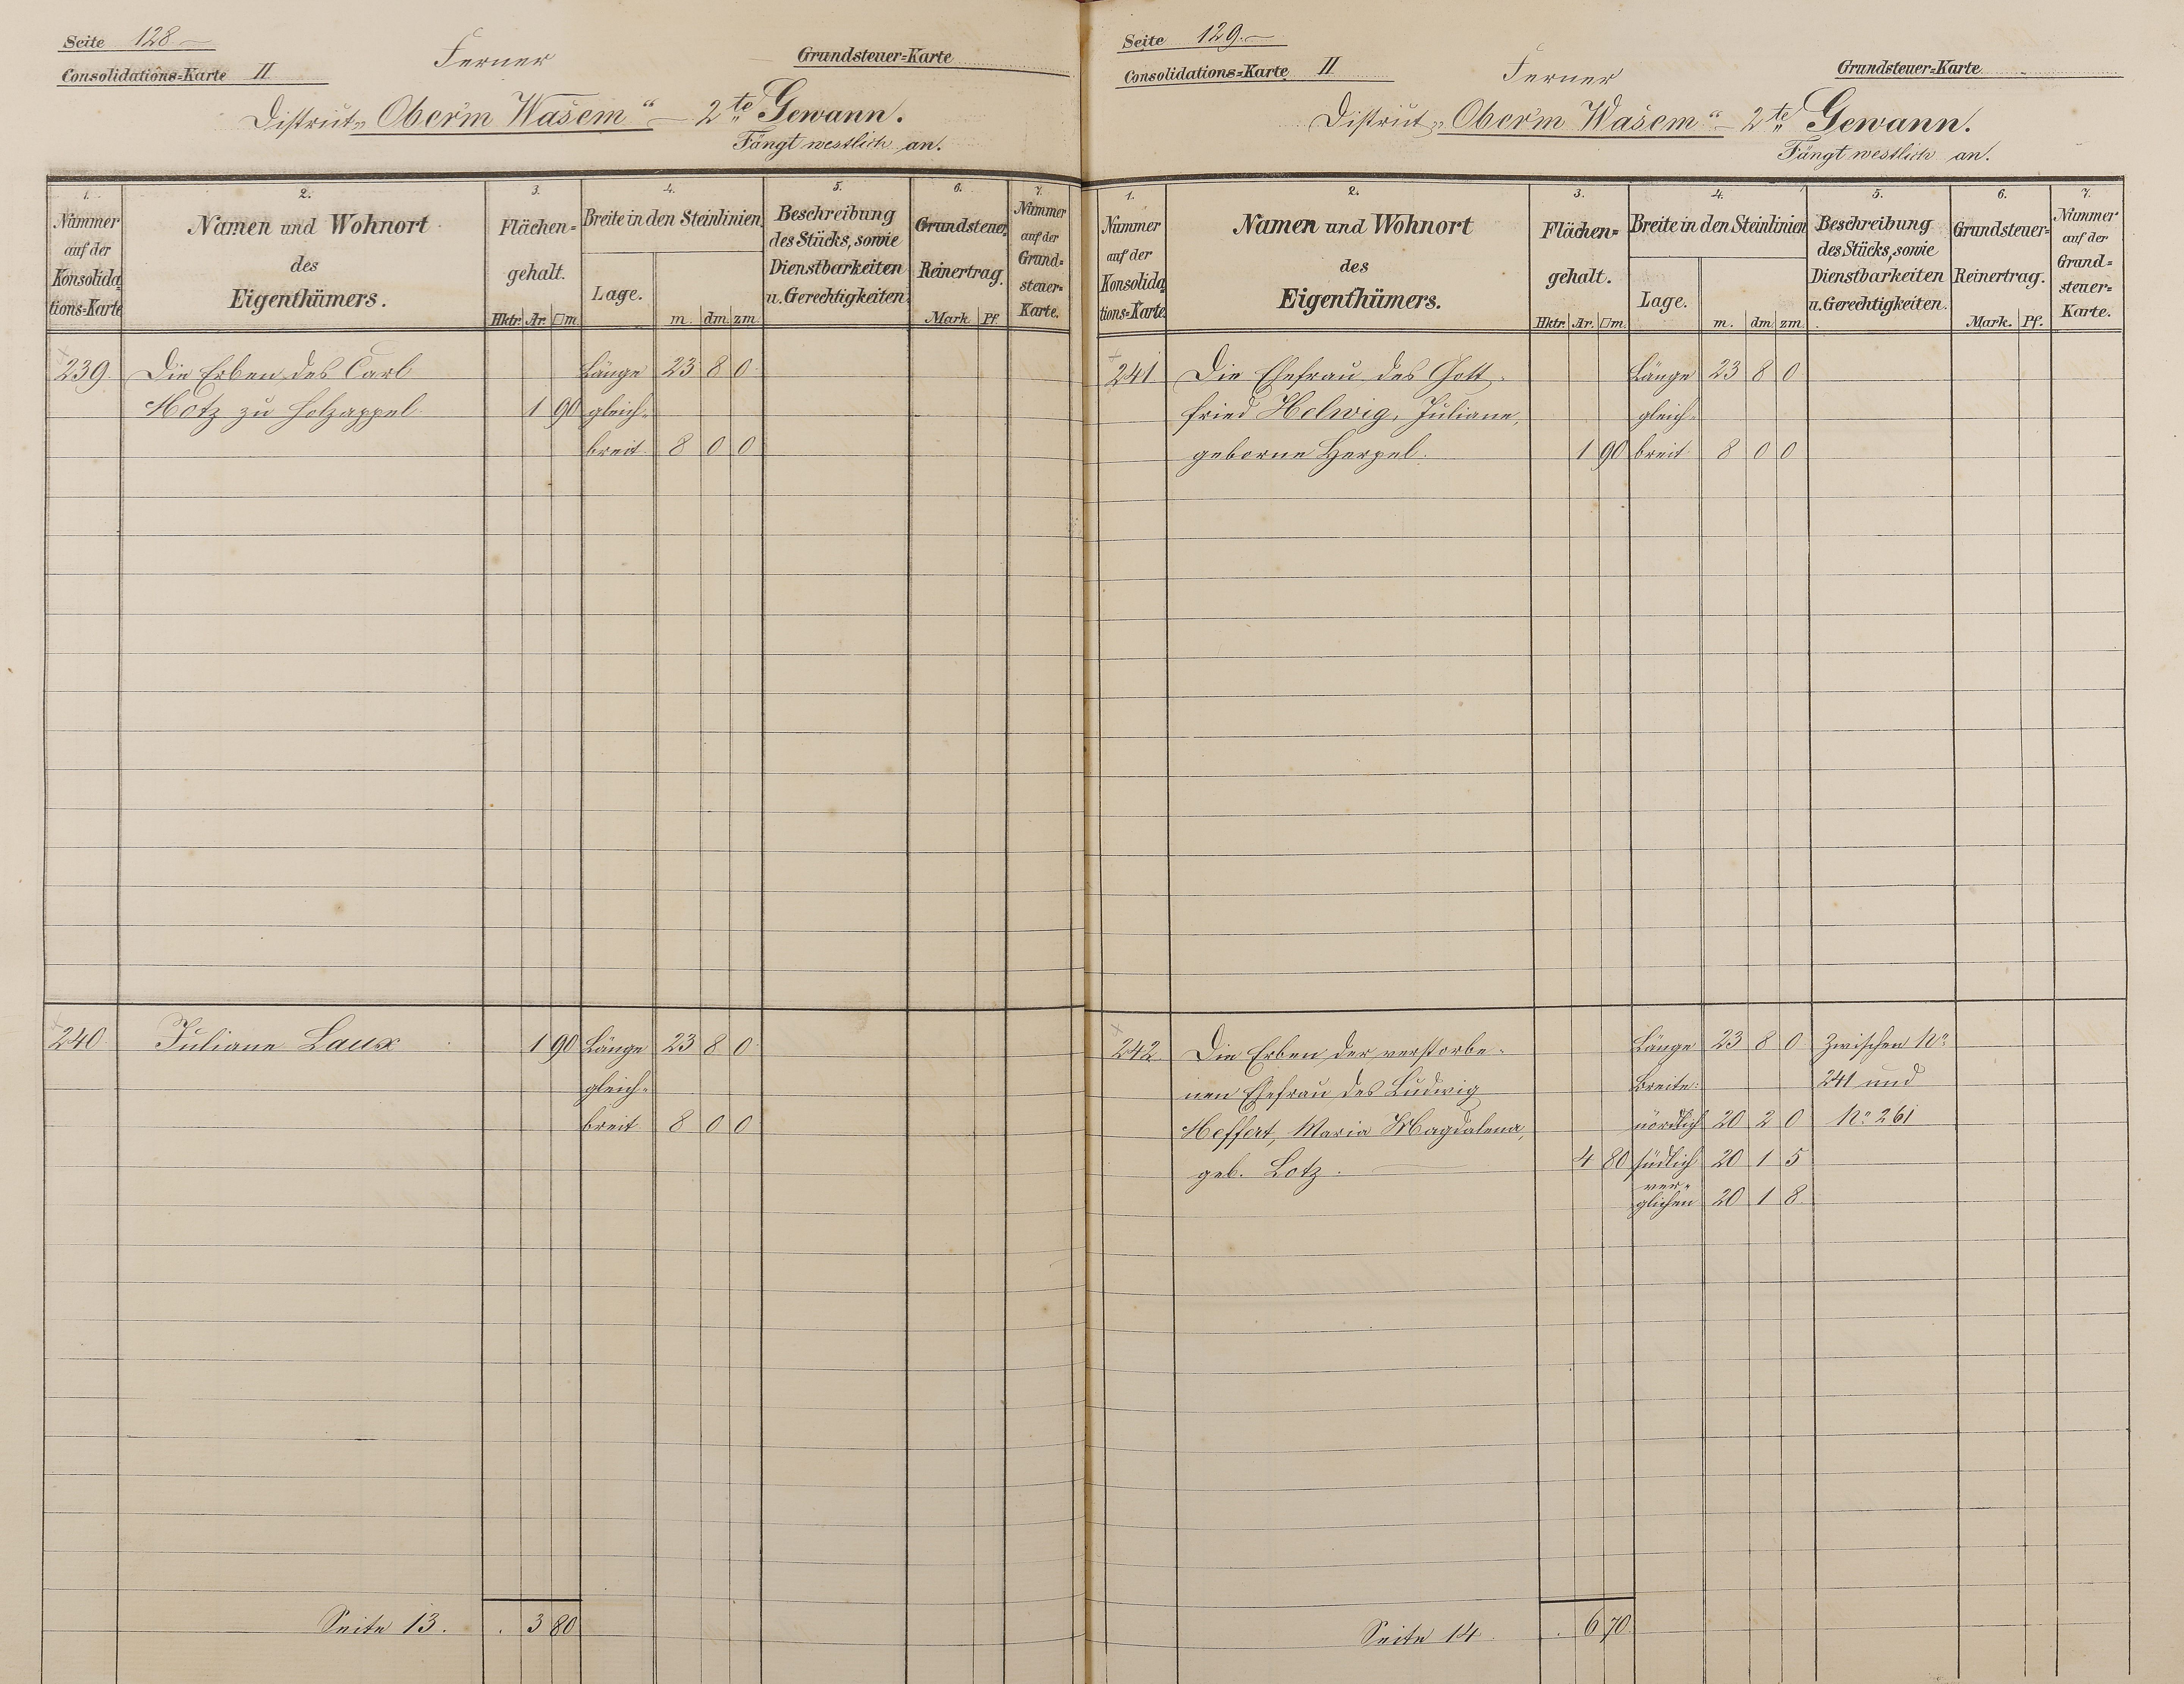 Seite 128.
Ferner
Grundsteuer=Karte
Consolidations=Karte II
District „Ober'm Wasem“ – 2te Gewann.
Fängt westlich an.
1. 2. 3. 4. 5. 6. 7.
Nummer auf der Konsolidations=Karte
Namen und Wohnort des Eigenthümers.
Flächen=gehalt.
Hktr. Ar. □m
Breite in den Steinlinien.
Lage.
m. dm zm
Beschreibung des Stücks, sowie Dienstbarkeiten u. Gerechtigkeiten.
Grundsteuer Reinertrag.
Mark Pf.
Nummer auf der Grund=steuer=Karte.
239. Die Erben des Carl Länge 23 8 0
Motz zu Holzappel 1 90 gleich=
breit 8 0 0
240. Juliane Laux 1 90 Länge 23 8 0
gleich=
breit 8 0 0
Seite 13. . 3 80
Seite 129.
Ferner
Grundsteuer=Karte
Consolidations=Karte II
District „Ober'm Wasem“ – 2te Gewann.
Fängt westlich an.
1. 2. 3. 4. 5. 6. 7.
Nummer auf der Konsolidations=Karte
Namen und Wohnort des Eigenthümers.
Flächen=gehalt.
Hktr. Ar. □m.
Breite in den Steinlinien
Lage.
m. dm zm
Beschreibung des Stücks, sowie Dienstbarkeiten u. Gerechtigkeiten.
Grundsteuer=Reinertrag.
Mark. Pf.
Nummer auf der Grund=steuer=Karte.
241 Die Ehefrau des Gott= Länge 23 8 0
fried Helwig, Juliane, gleich=
geborne Herpel. 1 90 breit 8 0 0
242. Die Erben der verstorbe= Länge 23 8 0 Zwischen No
nen Ehefrau des Ludwig Breite: 241 und
Heffert, Maria Magdalena, nördlich 20 2 0 No 261
geb. Lotz. 4 80 südlich 20 1 5
ver=
glichen 20 1 8
Seite 14. . 6 70